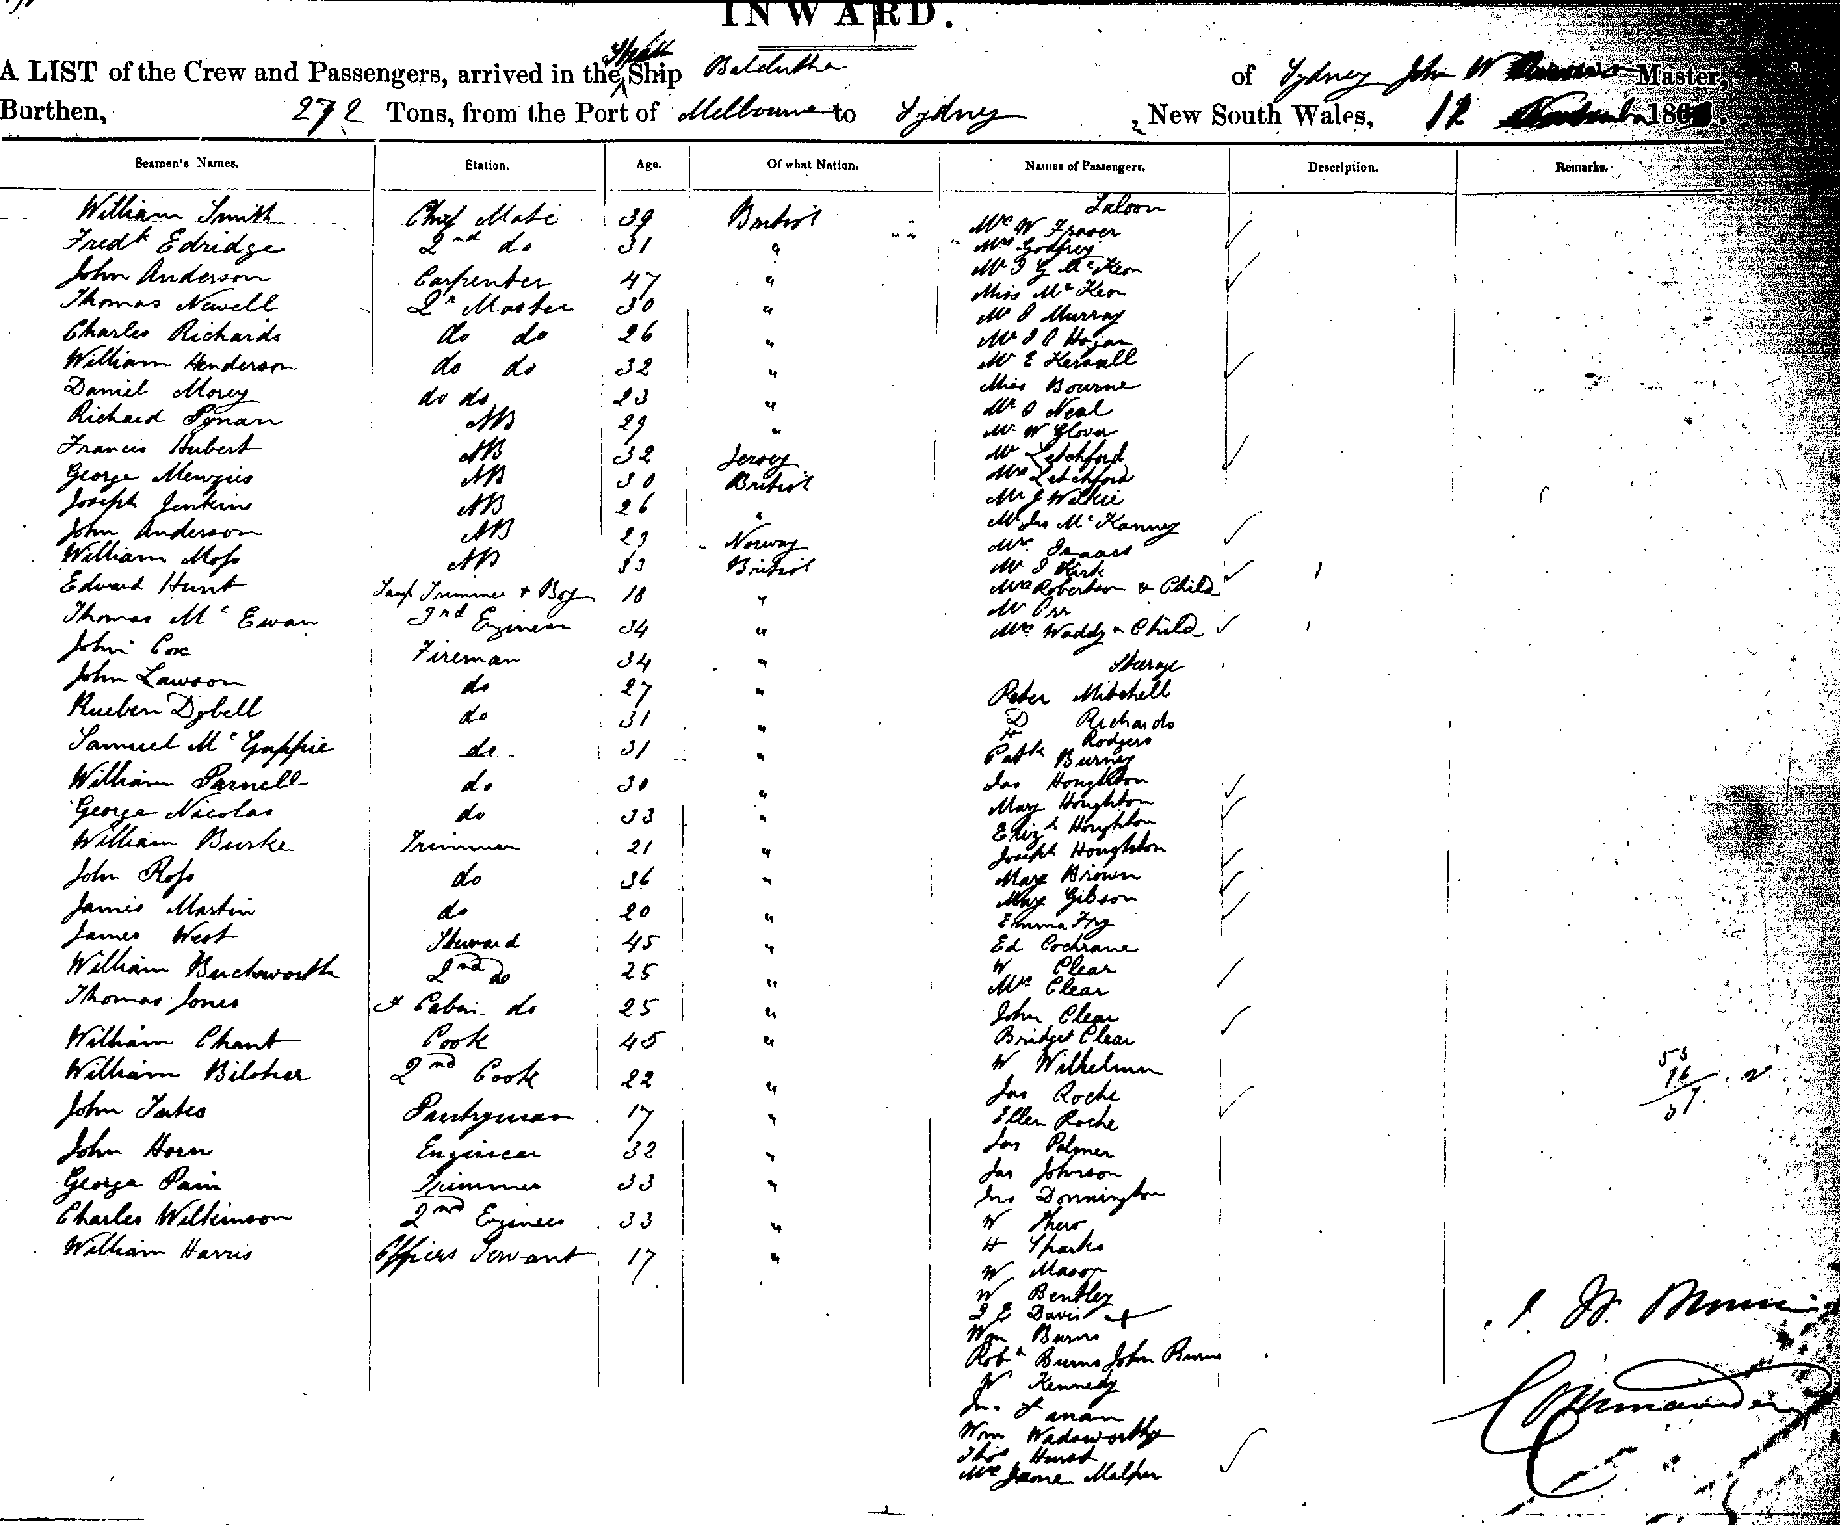 INWARD.
A LIST of the Crew and Passengers, arrived in the Ship Balclutha of Sydney John W Master,
Burthen, 272 Tons, from the Port of Melbourne to Sydney, New South Wales, 12 186
Seamen's Names. Station. Age. Of what Nation. Names of Passengers. Description. Remarks.
Saloon
William Smith Chief Mate 39 British Mr W Fraser
Fredk Edridge 2nd do 31 " Mrs Godfrey
John Anderson Carpenter 47 " Mr J G McKeon
Thomas Newell Qr Master 30 " Miss McKeon
Charles Richards do do 26 " Mr J Murray
William Henderson do do 32 " Mr J P Hogan
Daniel Morey do do 23 " Mr E Hersall
Richard Synan AB 29 " Miss Bourne
Francis Hubert AB 32 Jersey Mr O Neal
George Menzies AB 30 British Mr W Glover
Joseph Jenkins AB 26 " Mr Letchford
John Anderson AB 29 Norway Mrs Letchford
William Moss AB 33 British Mr J Wilkie
Edward Hunt Lamp Trimmer & Boy 18 " Mr Jas McKanney
Thomas McEwan 3rd Engineer 34 " Mr Isaacs
John Cox Fireman 34 " Mr J Kirk
John Lawson do 27 " Mrs Robertson & Child
Rueben Dobell do 31 " Mr Orr
Samuel McGuffie do 31 " Mrs Waddy & Child
William Parnell do 30 " Steerage
George Nicolas do 33 " Peter Mitchell
William Burke Trimmer 21 " D Richards
John Ross do 36 " H Rodgers
James Martin do 20 " Patk Burney
James West Steward 45 " Jas Houghton
William Buckworth 2nd do 25 " Mary Houghton
Thomas Jones F Cabin do 25 " Elizth Houghton
William Chant Cook 45 " Joseph Houghton
William Bilcher 2nd Cook 22 " Mary Brown
John Tutes Pantryman 17 " Mary Gibson
John Horn Engineer 32 " Emma Fry
George Pain Trimmer 33 " Ed Cochrane
Charles Wilkinson 2nd Engineer 33 " W Clear
William Harris Officers Servant 17 " Mrs Clear
John Clear
Bridget Clear
W Wilhelmn
Jas Roche
Ellen Roche
Jas Palmer
Jas Johnson
Jno Donnington
W
H Sparks
W Mason
W Bentley
J E Davis
Wm Burns
Robt Burns John Burns
W Kennedy
Jno
Wm Wadsworthy
Thos Hurst
Mrs Jane Malper
53
J. W.
Commander